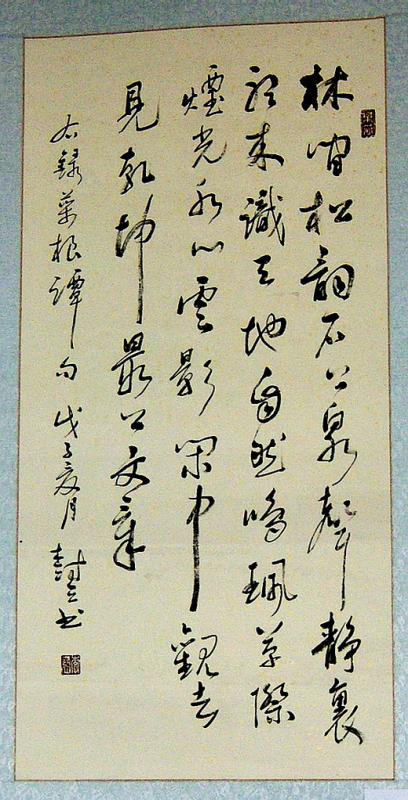 林間松韻石上泉聲靜裏
聽來識天地自然鳴珮草際
煙光水心雲影閑中觀去
見乾坤最上文章
右錄菜根譚句 戊子夏月 書